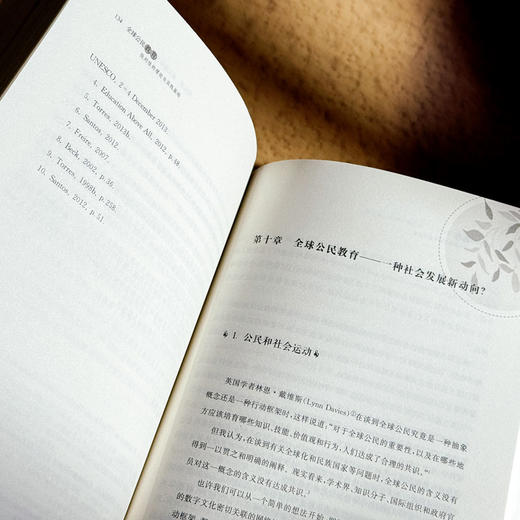 134 全球公民教育
UNESCO, 2~4 December 2013.
4. Education Above All, 2012, p.48.
5. Torres, 2013b.
6. Santos, 2012.
7. Freire, 2007.
8. Beck, 2002, p.36.
9. Torres, 1998b, p.258.
10. Santos, 2012, p.51.
第十章 全球公民教育——一种社会发展新动向?
1. 公民和社会运动
英国学者林恩·戴维斯(Lynn Davies)①在谈到全球公民究竟是一种抽象
概念还是一种行动框架时,这样说道:“对于全球公民的重要性,以及在哪些地
方应该培育哪些知识、技能、价值观和行为,人们达成了合理的共识。”
但我认为,在谈到有关全球化和民族国家等问题时,全球公民的含义没有
得到一以贯之和明确的阐释。现实看来,学术界、知识分子、国际组织和政府官
员对这一概念的含义没有达成共识。
也许我们可以从一个简单的想法开始,即
的数字文化密切关联的网络
动框架